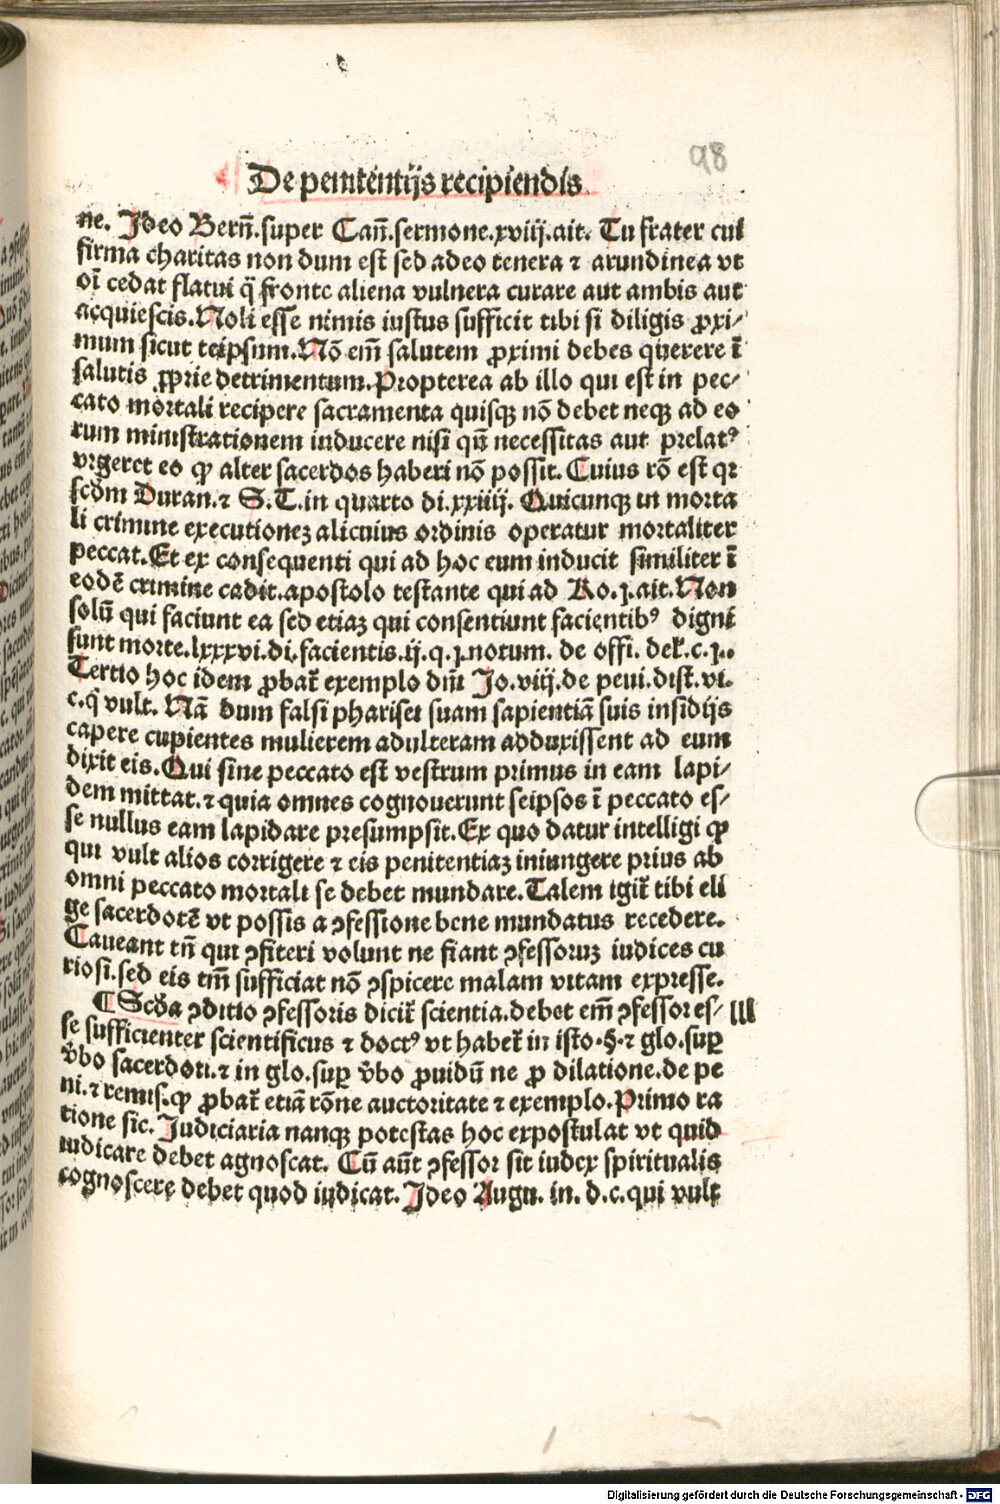 98
De penitentijs recipiendis
ne. Jdeo Bern̄.super Can̄.sermone.xviij.ait. Tu frater cui
firma charitas non dum est sed adeo tenera ⁊ arundinea vt
oī cedat flatui q̄ fronte aliena vulnera curare aut ambis aut
acquiescis.Noli esse nimis iustus sufficit tibi si diligis ꝓxi/
mum sicut teipsum.Nō em̄ salutem ꝓximi debes querere ī
salutis ꝓprie detrimentum.Propterea ab illo qui est in pec/
cato mortali recipere sacramenta quisqꝫ nō debet neqꝫ ad eo
rum ministrationem inducere nisi qn̄ necessitas aut prelatꝰ
vrgeret eo ꝙ alter sacerdos haberi nō possit. Cuius rō est qꝛ
scd̄m Duran.⁊ S.T.in quarto di.xxiiij. Quicunqꝫ in morta
li crimine executioneꝫ alicuius ordinis operatur mortaliter
peccat.Et ex consequenti qui ad hoc eum inducit similiter ī
eodē crimine cadit.apostolo testante qui ad Ro.j.ait.Non
solū qui faciunt ea sed etiaꝫ qui consentiunt facientibꝰ digni
sunt morte.lxxxvi.di.facientis.ij.q.j.notum. de offi. del̄.c.j..
Tertio hoc idem ꝓbat̄ exemplo dn̄i Jo.viij.de peni.dist.vi.
c.q̄ vult. Nā dum falsi pharisei suam sapientiā suis insidijs
capere cupientes mulierem adulteram adduxissent ad eum
dixit eis.Qui sine peccato est vestrum primus in eam lapi/
dem mittat.⁊ quia omnes cognouerunt seipsos ī peccato es/
se nullus eam lapidare presumpsit.Ex quo datur intelligi ꝙ
qui vult alios corrigere ⁊ eis penitentiaꝫ iniungere prius ab
omni peccato mortali se debet mundare.Talem igit̄ tibi eli
ge sacerdotē vt possis a ꝯfessione bene mundatus recedere.
Caueant tn̄ qui ꝯfiteri volunt ne fiant ꝯfessoruꝫ iudices cu
riosi.sed eis tm̄ sufficiat nō ꝯspicere malam vitam expresse.
¶ Scd̄a ꝯditio ꝯfessoris dicit̄ scientia.debet em̄ ꝯfessor es/ III
se sufficienter scientificus ⁊ doctꝰ vt habet̄ in isto.§.⁊ glo.suꝑ
v̄bo sacerdoti.⁊ in glo.suꝑ v̄bo ꝓuidū ne ꝓ dilatione.de pe
ni.⁊ remis.ꝙ ꝓbat̄ etiā rōne auctoritate ⁊ exemplo.Primo ra
tione sic. Judiciaria nanqꝫ potestas hoc expostulat vt quid
iudicare debet agnoscat. Cū aūt ꝯfessor sit iudex spiritualis
cognoscere debet quod iudicat. Jdeo Augu. in. d.c.qui vult
Digitalisierung gefördert durch die Deutsche Forschungsgemeinschaft - DFG